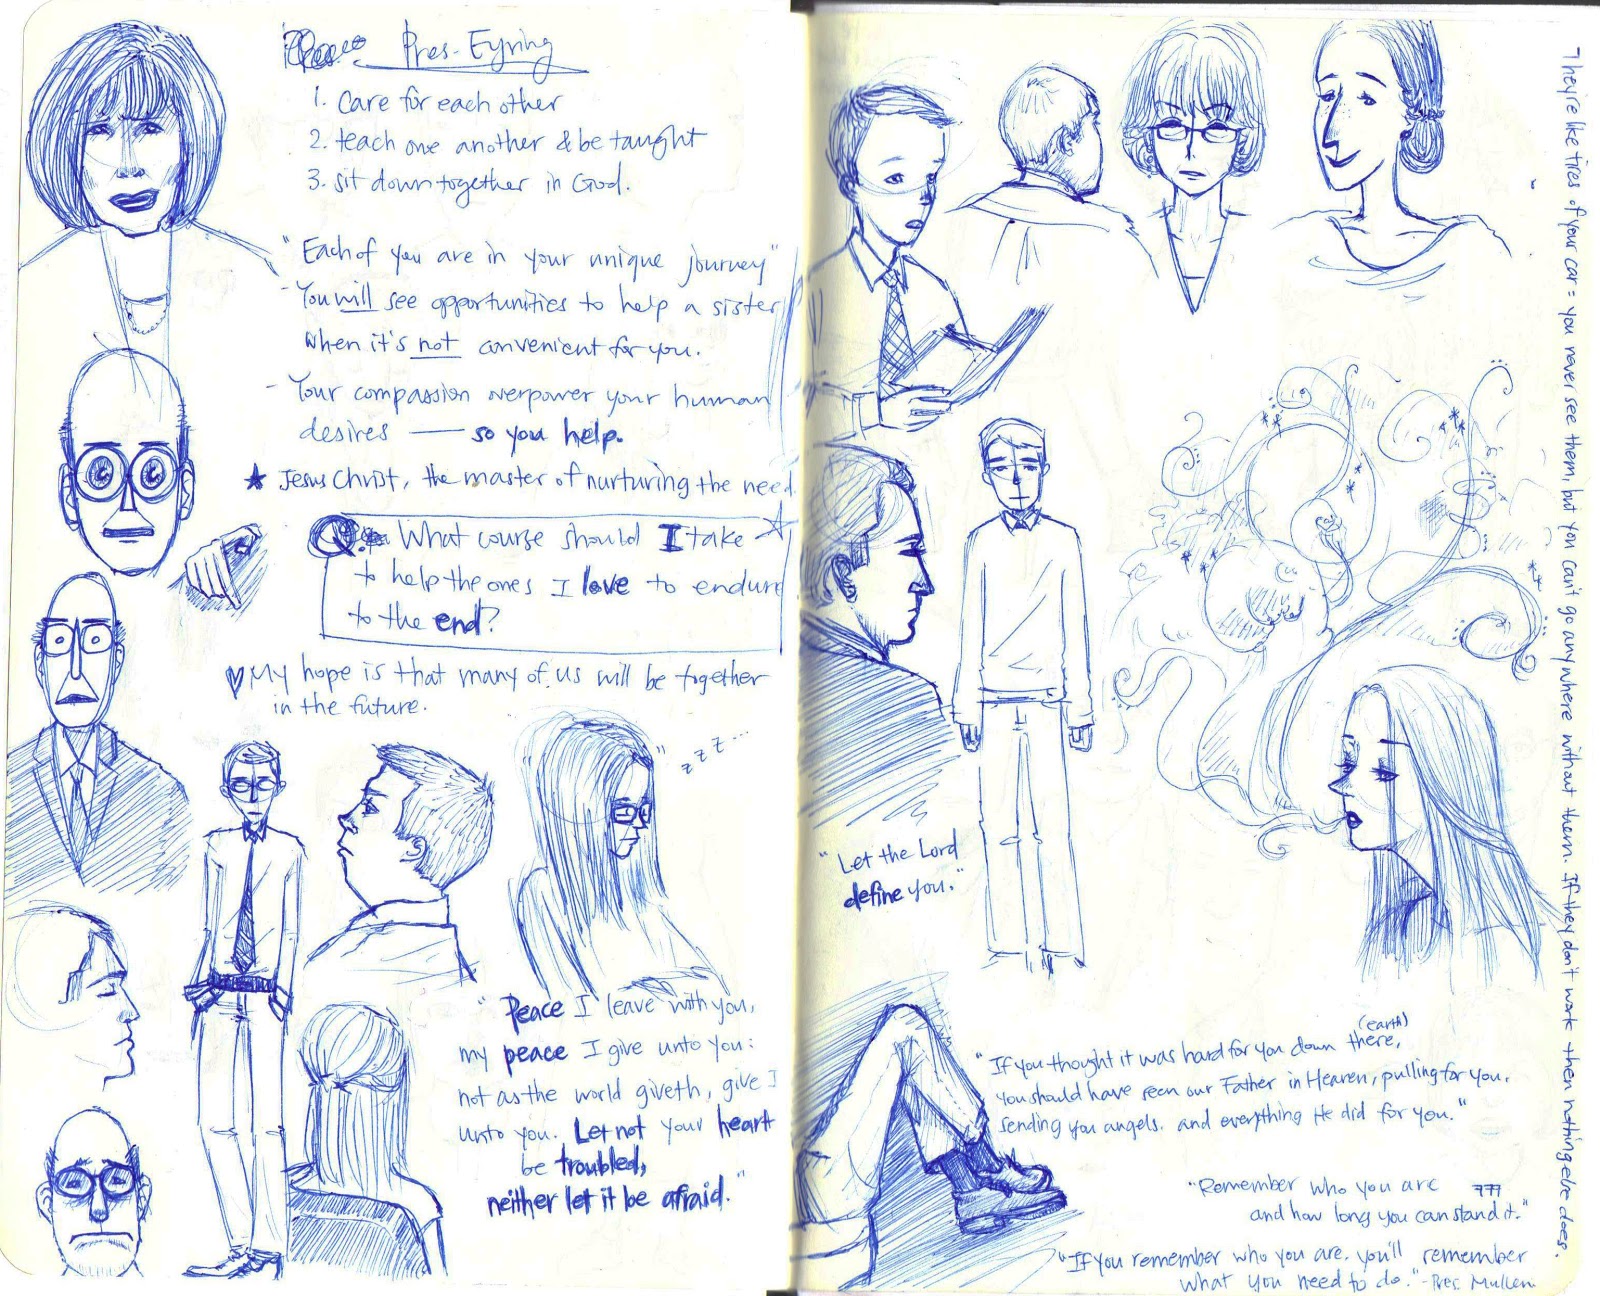 Pres. Eyring
1. Care for each other
2. teach one another & be taught
3. sit down together in God.
"Each of you are in your unique journey"
- You will see opportunities to help a sister
when it's not convenient for you.
- Your compassion overpower your human
desires — so you help.
★ Jesus Christ, the master of nurturing the need
Q. What course should I take
to help the ones I love to endure
to the end?
♥ My hope is that many of us will be together
in the future.
z z z ...
"Peace I leave with you,
my peace I give unto you:
not as the world giveth, give I
unto you. Let not your heart
be troubled,
neither let it be afraid."
"Let the Lord
define you."
(earth)
"If you thought it was hard for you down there,
you should have seen our Father in Heaven, pulling for you,
sending you angels. and everything He did for you."
"Remember who you are
and how long you can stand it."
"If you remember who you are. you'll remember
what you need to do." - Pres. Mullen
They're like tires of your car = you never see them, but you can't go anywhere without them. If they don't work then nothing else does.